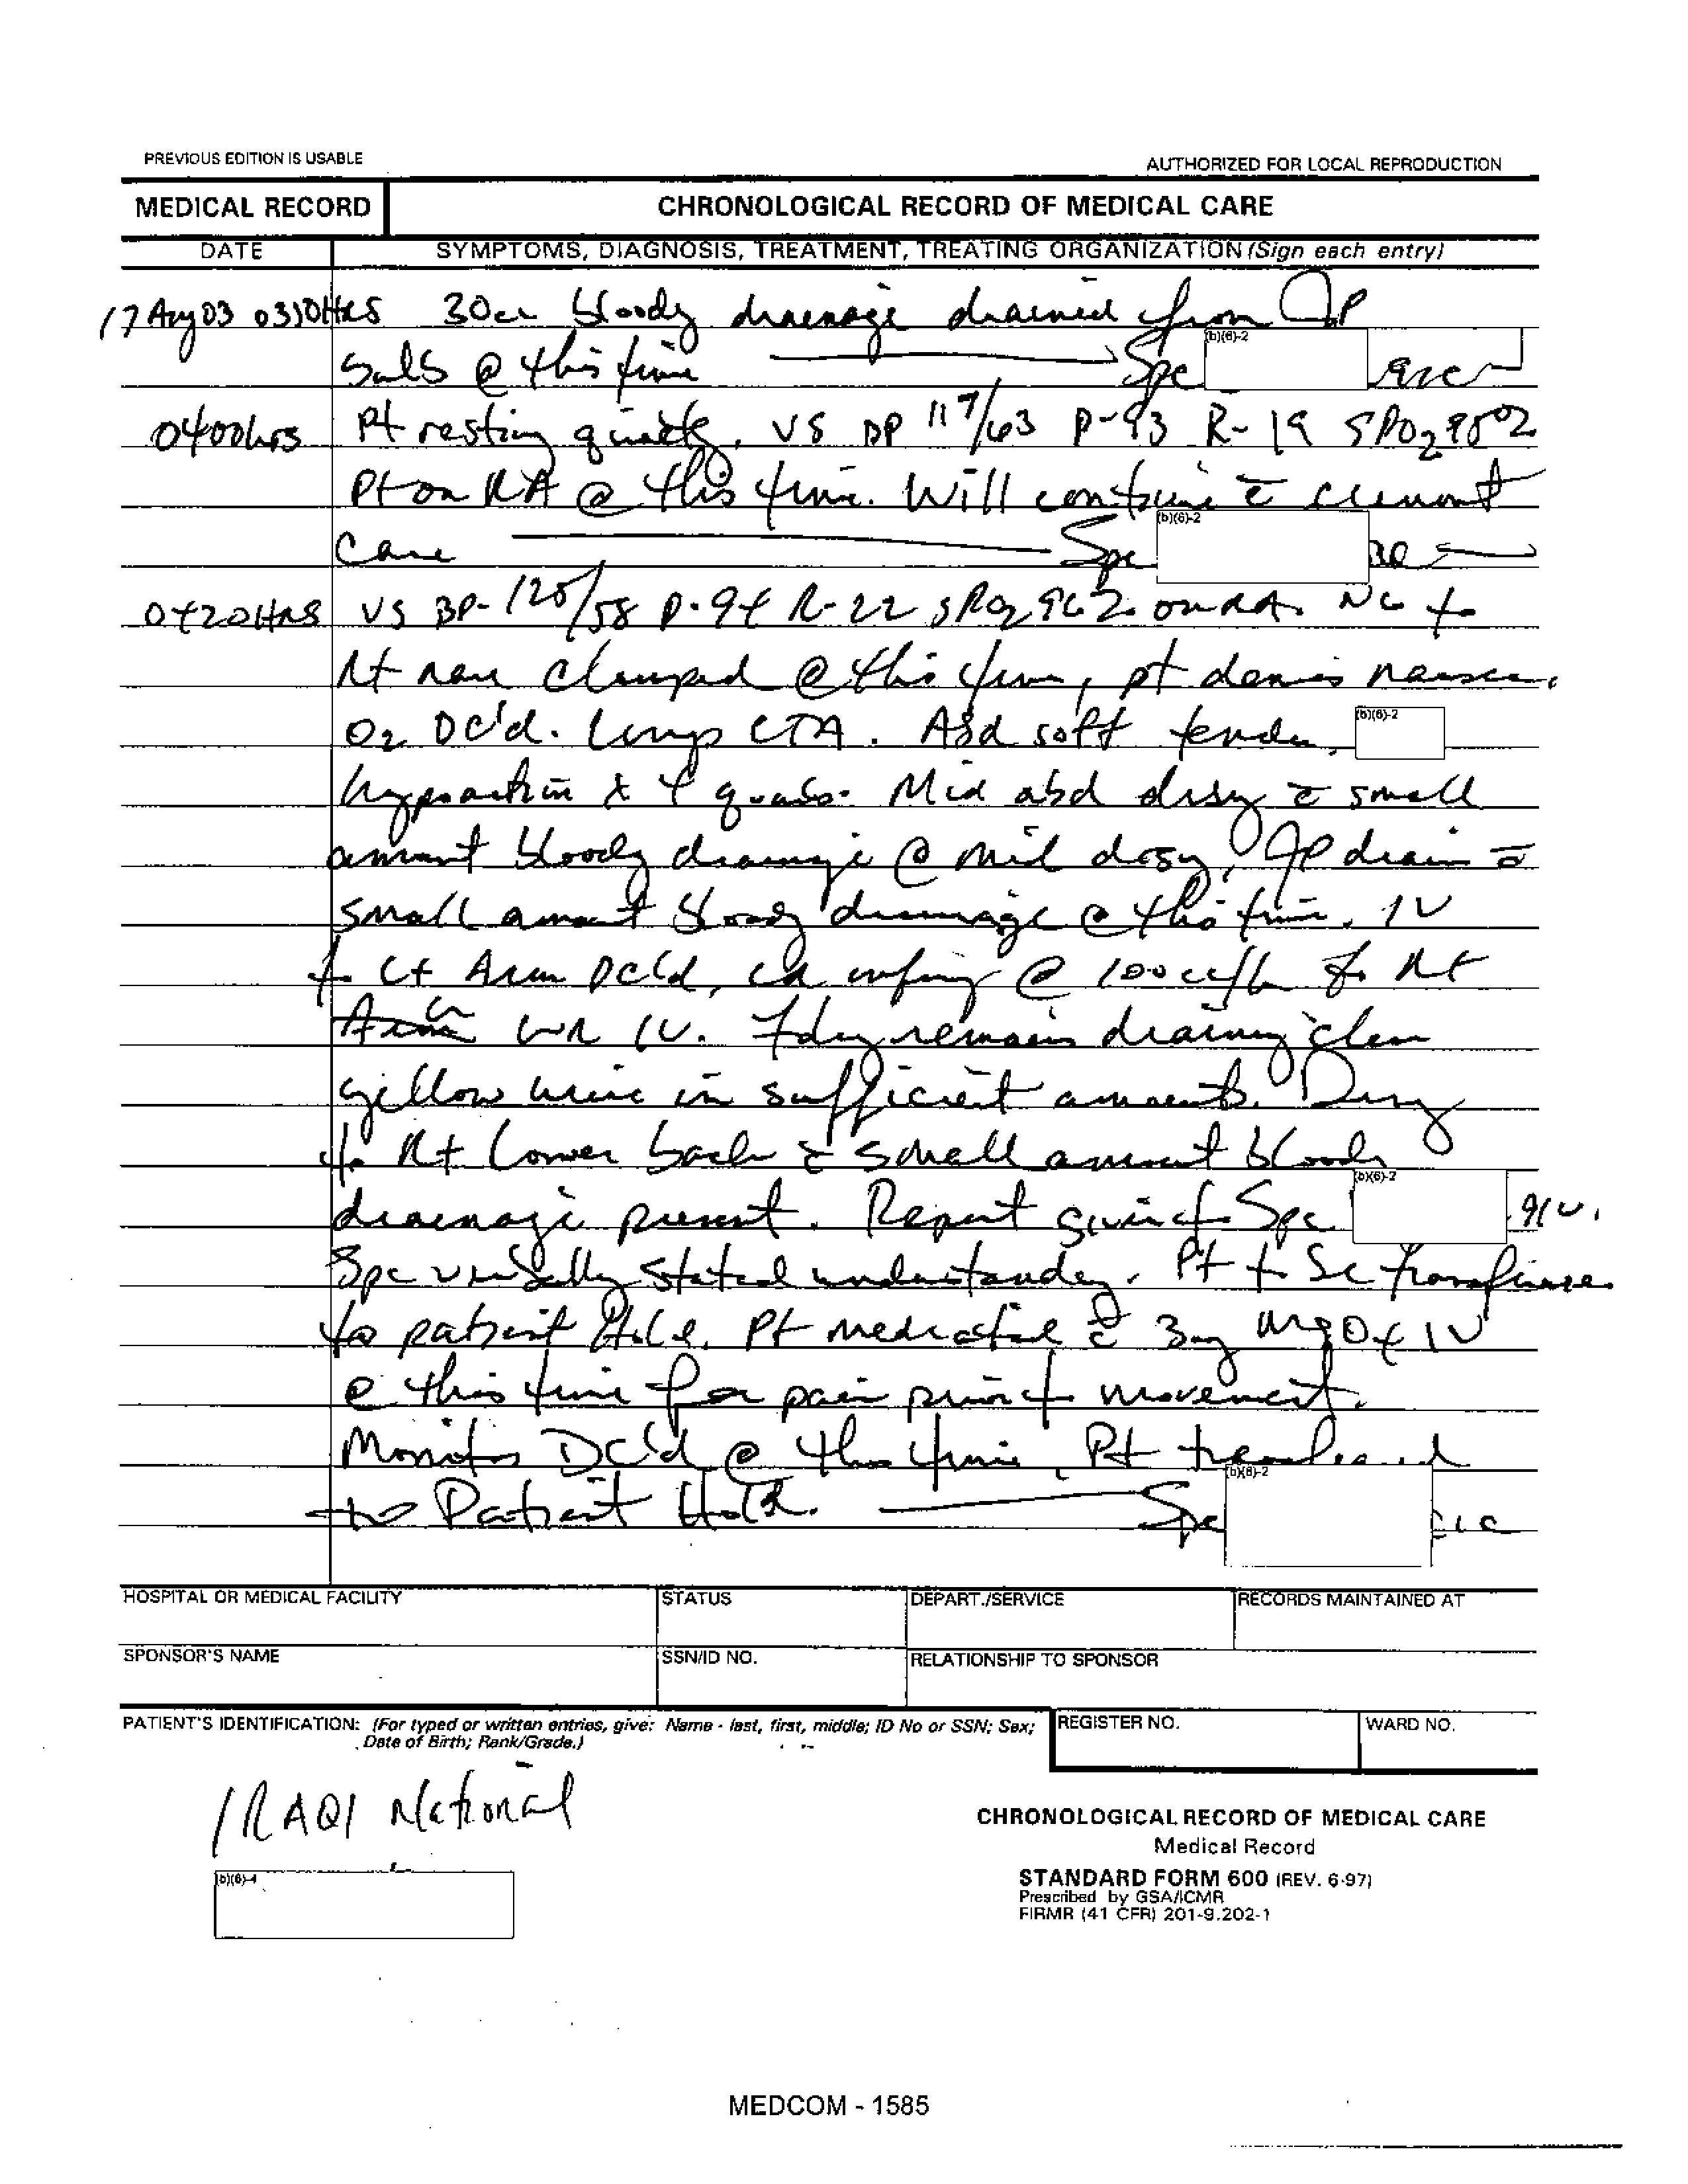 PREVIOUS EDITION IS USABLE
AUTHORIZED FOR LOCAL REPRODUCTION
MEDICAL RECORD
CHRONOLOGICAL RECORD OF MEDICAL CARE
DATE
SYMPTOMS, DIAGNOSIS, TREATMENT, TREATING ORGANIZATION (Sign each entry)
17 Aug 03 0310HRS 30cc bloody drainage drained from JP
bulb @ this time Spc (b)(6)-2
0400hrs Pt resting quietly, VS BP 117/63 P-93 R-19 SPO2 98%
Pt on RA @ this time. Will continue c̄ current
care Spc (b)(6)-2
0420HRS VS BP-120/58 P-94 R-22 SPO2 96% on RA. NG to
Rt nare clamped @ this time, pt denies nausea.
O2 DC'd. Lungs CTA. Abd soft tender, (b)(6)-2
hypoactive x 4 quads. Mid abd drsg c̄ small
amount bloody drainage @ mid drsg, JP drain c̄
small amount bloody drainage @ this time. IV
to Lt Arm DC'd, LR infusing @ 100cc/h to Rt
Arm IV. Foley remains draining clear
yellow urine in sufficient amounts. Drsg
to Rt Lower back c̄ small amount bloody
drainage present. Report given to Spc (b)(6)-2 91W.
Spc verbally stated understanding. Pt to be transferred
to patient Hold. Pt medicated c̄ 3mg MSO4 IV
@ this time for pain prior to movement.
Monitor DC'd @ this time. Pt transferred
to Patient Hold. Spc (b)(6)-2
HOSPITAL OR MEDICAL FACILITY
STATUS
DEPART./SERVICE
RECORDS MAINTAINED AT
SPONSOR'S NAME
SSN/ID NO.
RELATIONSHIP TO SPONSOR
PATIENT'S IDENTIFICATION: (For typed or written entries, give: Name - last, first, middle; ID No or SSN; Sex; Date of Birth; Rank/Grade.)
REGISTER NO.
WARD NO.
IRAQI National
(b)(6)-4
CHRONOLOGICAL RECORD OF MEDICAL CARE
Medical Record
STANDARD FORM 600 (REV. 6-97)
Prescribed by GSA/ICMR
FIRMR (41 CFR) 201-9.202-1
MEDCOM - 1585